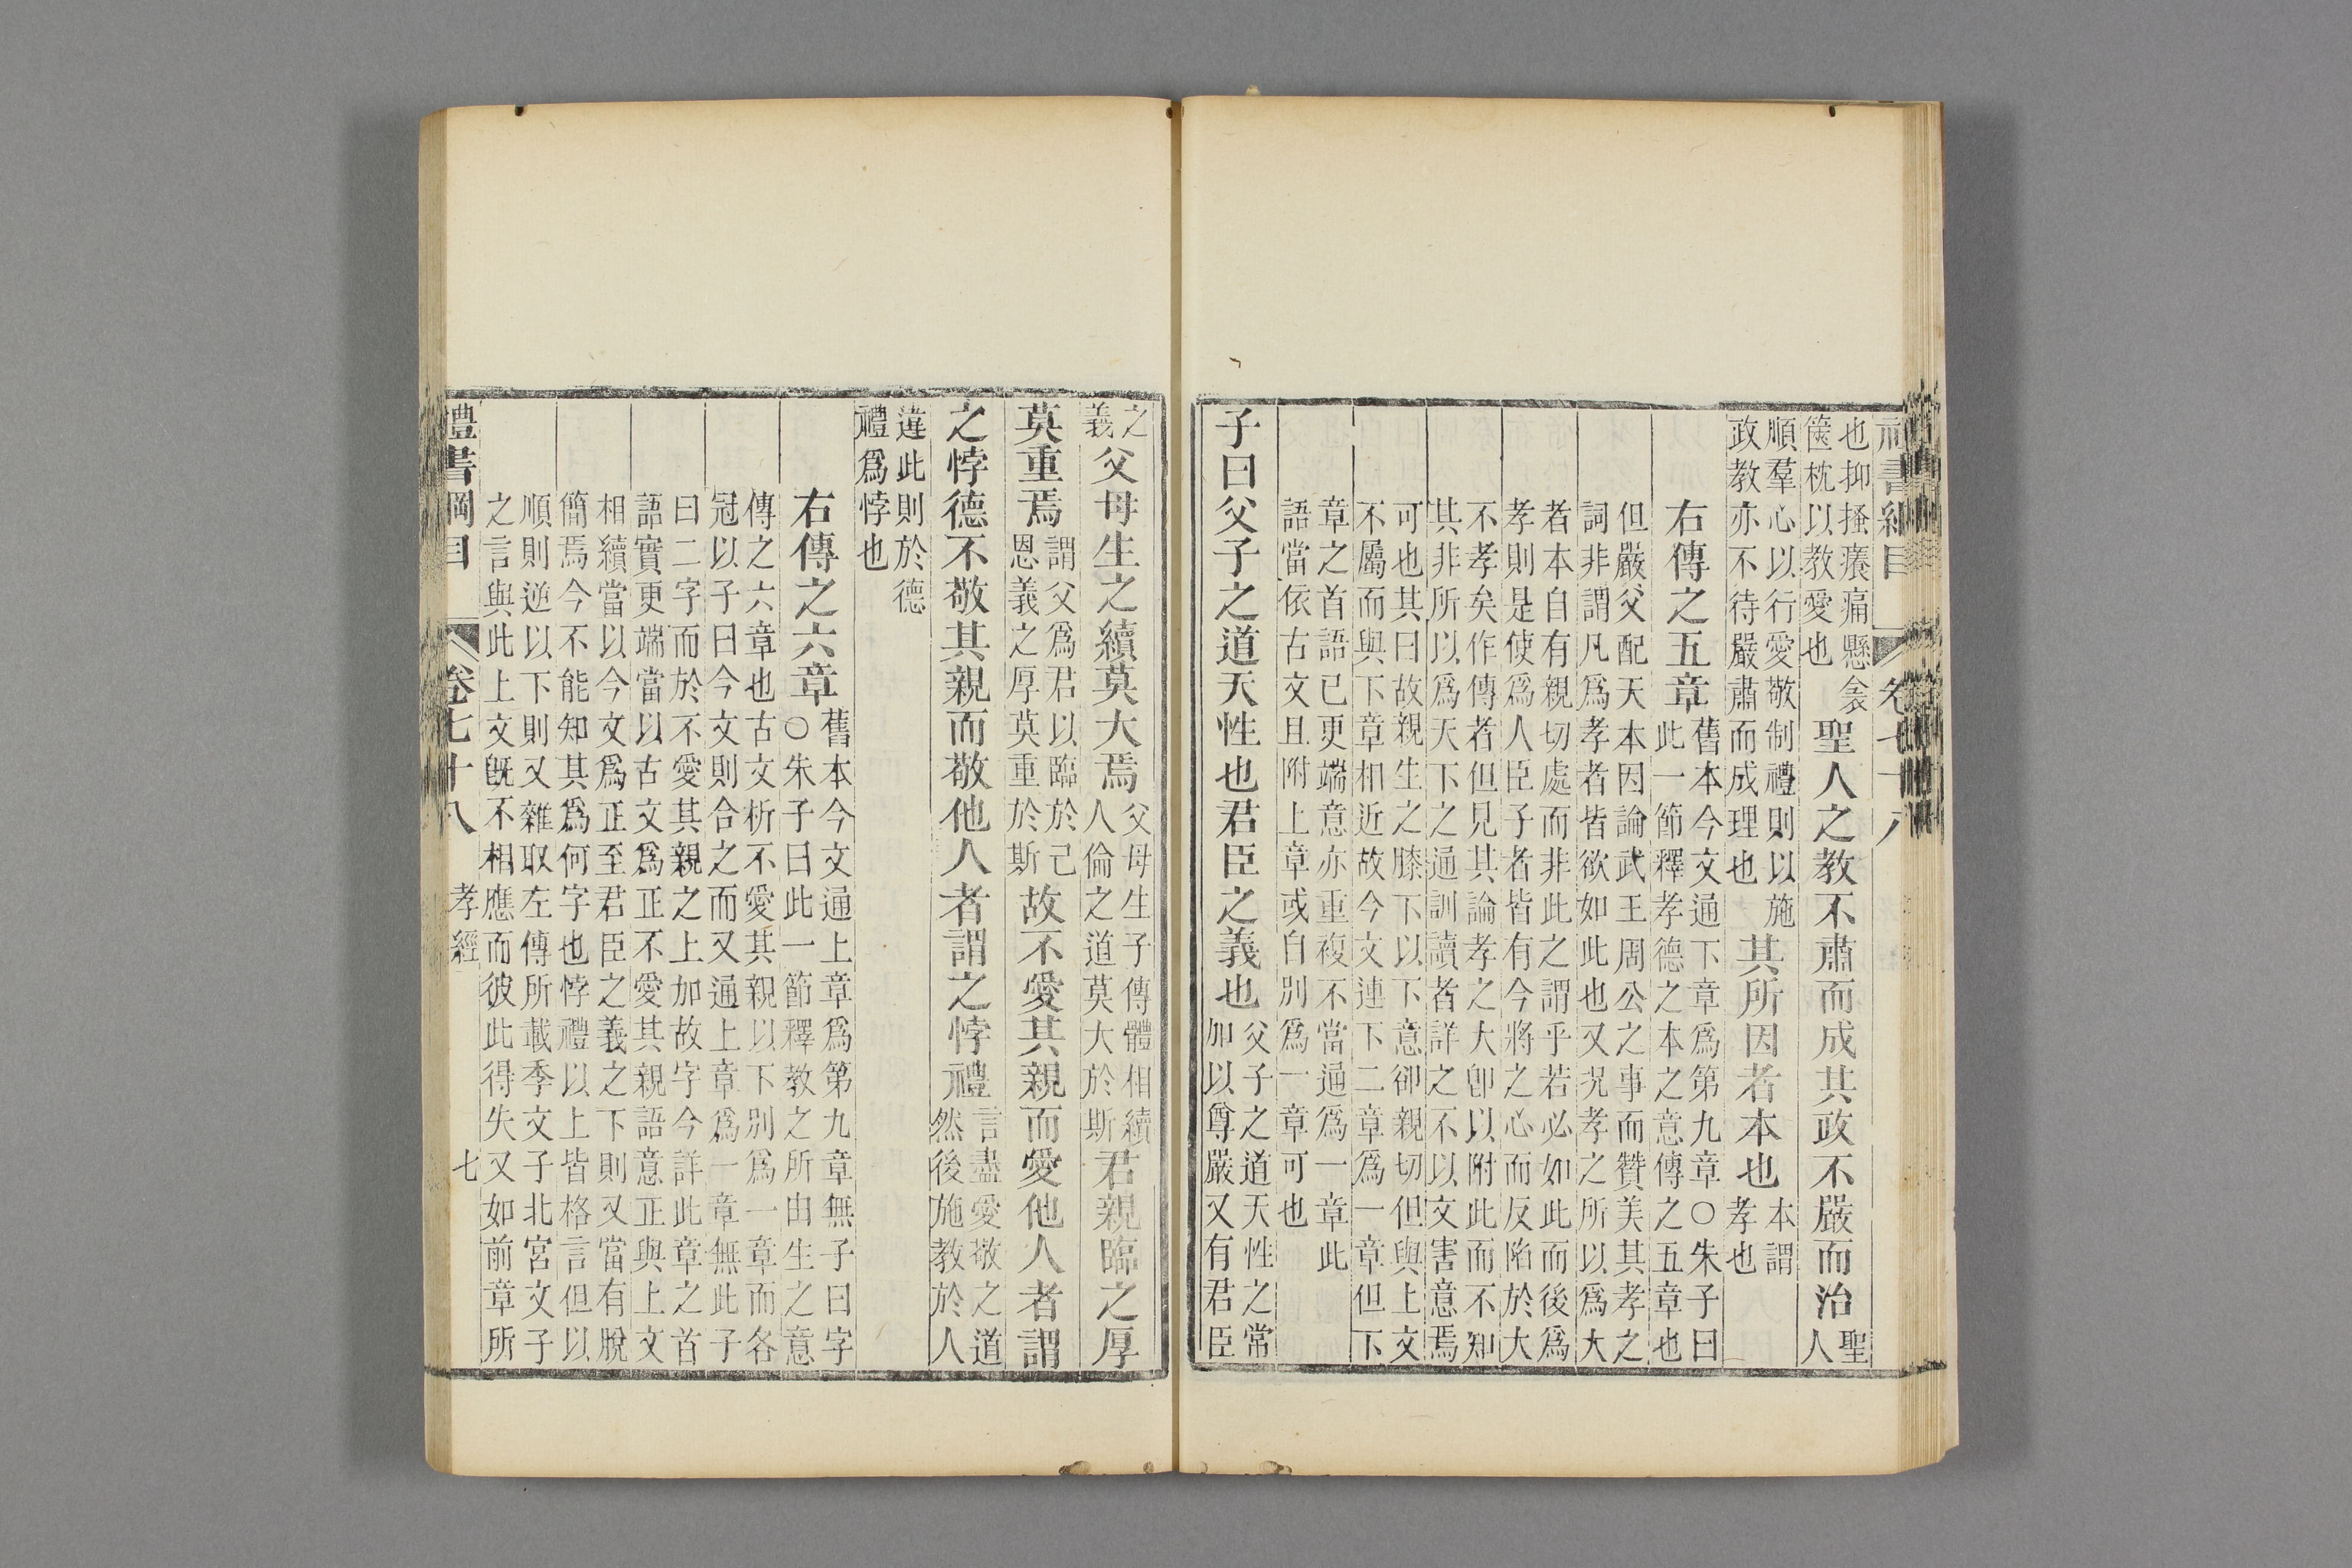 也抑搔癢痛懸衾篋枕以教愛也聖人之教不肅而成其政不嚴而治聖人
順羣心以行愛敬制禮則以施政教亦不待嚴肅而成理也其所因者本也本謂孝也
右傳之五章舊本今文通下章爲第九章○朱子曰此一節釋孝德之本之意傳之五章也
但嚴父配天本因論武王周公之事而贊美其孝之
詞非謂凡爲孝者皆欲如此也又况孝之所以爲大
者本自有親切處而非此之謂乎若必如此而後爲
孝則是使爲人臣子者皆有今將之心而反陷於大
不孝矣作傳者但見其論孝之大卽以附此而不知
其非所以爲天下之通訓讀者詳之不以文害意焉
可也其曰故親生之膝下以下意卻親切但與上文
不屬而與下章相近故今文連下二章爲一章但下
章之首語已更端意亦重複不當通爲一章此
語當依古文且附上章或自別爲一章可也
子曰父子之道天性也君臣之義也父子之道天性之常加以尊嚴又有君臣
之義父母生之續莫大焉父母生子傳體相續人倫之道莫大於斯君親臨之厚
莫重焉謂父爲君以臨於己恩義之厚莫重於斯故不愛其親而愛他人者謂
之悖德不敬其親而敬他人者謂之悖禮言盡愛敬之道然後施教於人
違此則於德禮爲悖也
右傳之六章舊本今文通上章爲第九章無子曰字○朱子曰此一節釋教之所由生之意
傳之六章也古文析不愛其親以下別爲一章而各
冠以子曰今文則合之而又通上章爲一章無此子
曰二字而於不愛其親之上加故字今詳此章之首
語實更端當以古文爲正不愛其親語意正與上文
相續當以今文爲正至君臣之義之下則又當有脫
簡焉今不能知其爲何字也悖禮以上皆格言但以
順則逆以下則又雜取左傳所載季文子北宮文子
之言與此上文既不相應而彼此得失又如前章所
禮書綱目 卷七十八 孝經 七